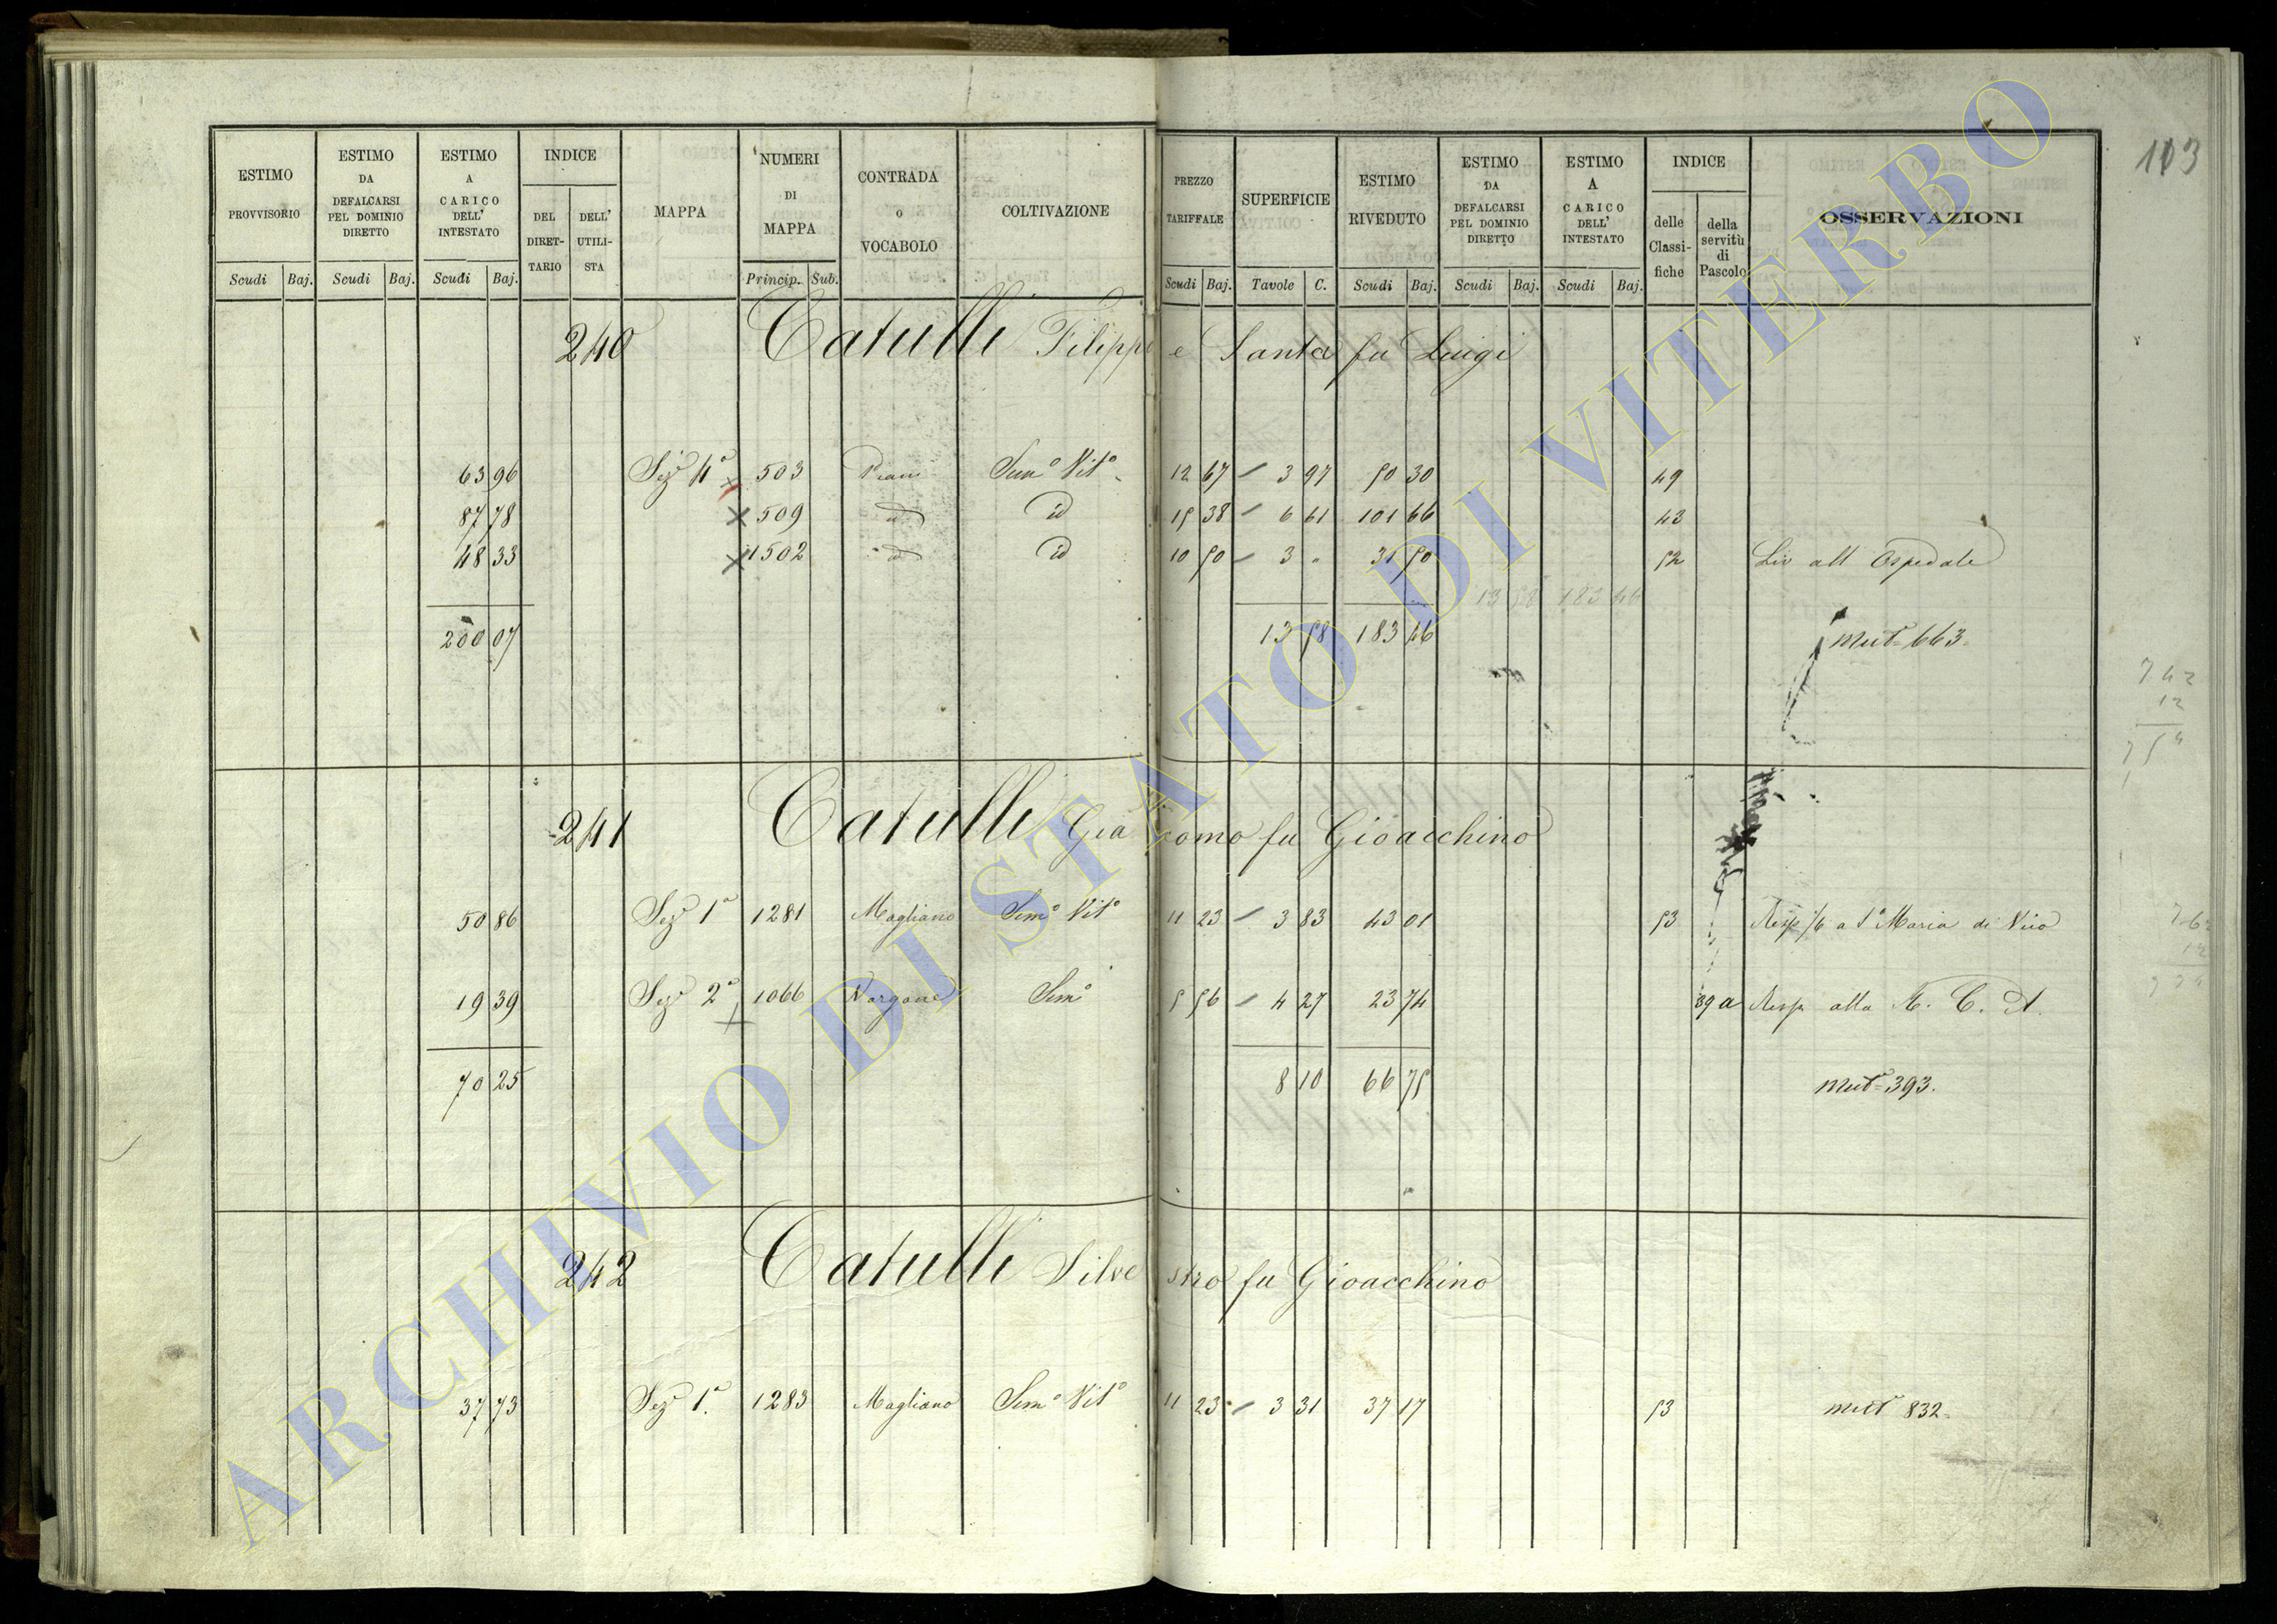 103
ESTIMO PROVVISORIO Scudi Baj.
ESTIMO DA DEFALCARSI PEL DOMINIO DIRETTO Scudi Baj.
ESTIMO A CARICO DELL' INTESTATO Scudi Baj.
INDICE DEL DIRETTARIO DELL' UTILISTA
MAPPA
NUMERI DI MAPPA Princip. Sub.
CONTRADA o VOCABOLO
COLTIVAZIONE
PREZZO TARIFFALE Scudi Baj.
SUPERFICIE Tavole C.
ESTIMO RIVEDUTO Scudi Baj.
ESTIMO DA DEFALCARSI PEL DOMINIO DIRETTO Scudi Baj.
ESTIMO A CARICO DELL' INTESTATO Scudi Baj.
INDICE delle Classifiche della servitù di Pascolo
OSSERVAZIONI
240 Catulli Filippo e Santa fu Luigi
63 96 Sez.e 4a 503 Piani Sem.o Vit.o 12 67 3 97 50 30 49
87 78 509 id id 15 38 6 61 101 66 43
48 33 1502 id id 10 50 3 " 31 50 52 Liv all Ospedale
13 58 183 46
200 07 13 58 183 46 mut.e 663.
742
12
754
241 Catulli Giacomo fu Gioacchino
50 86 Sez.e 1a 1281 Magliano Sem.o Vit.o 11 23 3 83 43 01 53 Risp. 1/6 a S.a Maria di Vico
19 39 Sez.e 2a 1066 Norgone Sem.o 5 56 4 27 23 74 39 a Risp. alla R. C. A.
70 25 8 10 66 75 mut.e 393.
242 Catulli Silvestro fu Gioacchino
37 73 Sez.e 1a 1283 Magliano Sem.o Vit.o 11 23 3 31 37 17 53 mut.e 832.
ARCHIVIO DI STATO DI VITERBO